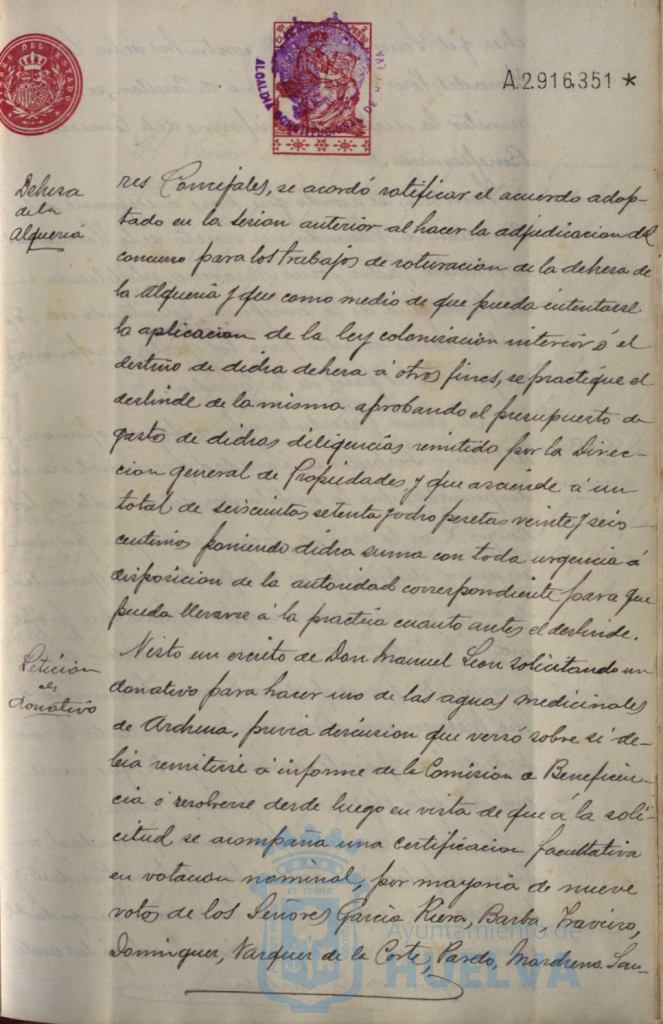 A.2.916,351 *
ALCALDIA CONSTITUCIONAL DE
Dehesa
de la
Alquería
res Concejales, se acordó ratificar el acuerdo adop-
tado en la sesion anterior al hacer la adjudicacion del
concurso para los trabajos de roturacion de la dehesa de
la Alquería y que como medio de que pueda intentarse
la aplicacion de la ley colonizacion interior ó el
destino de dicha dehesa á otros fines, se practique el
deslinde de la misma aprobando el presupuesto de
gasto de dichas diligencias remitido por la Direc-
cion general de Propiedades y que asciende á un
total de seiscientas setenta y ocho pesetas veinte y seis
centimos poniendo dicha suma con toda urgencia á
disposicion de la autoridad correspondiente para que
pueda llevarse á la practica cuanto antes el deslinde.
Petición
de
donativo
Visto un escrito de Don Manuel Leon solicitando un
donativo para hacer uso de las aguas medicinales
de Archena, previa discusion que versó sobre si de-
bia remitirse á informe de la Comision de Beneficen-
cia ó resolverse desde luego en vista de que á la soli-
citud se acompaña una certificacion facultativa
en votacion nominal, por mayoria de nueve
votos de los Señores Garcia Riera, Barba, Travieso,
Dominguez, Vazquez de la Corte, Pardo, Marchena San-
Ayuntamiento de
HUELVA